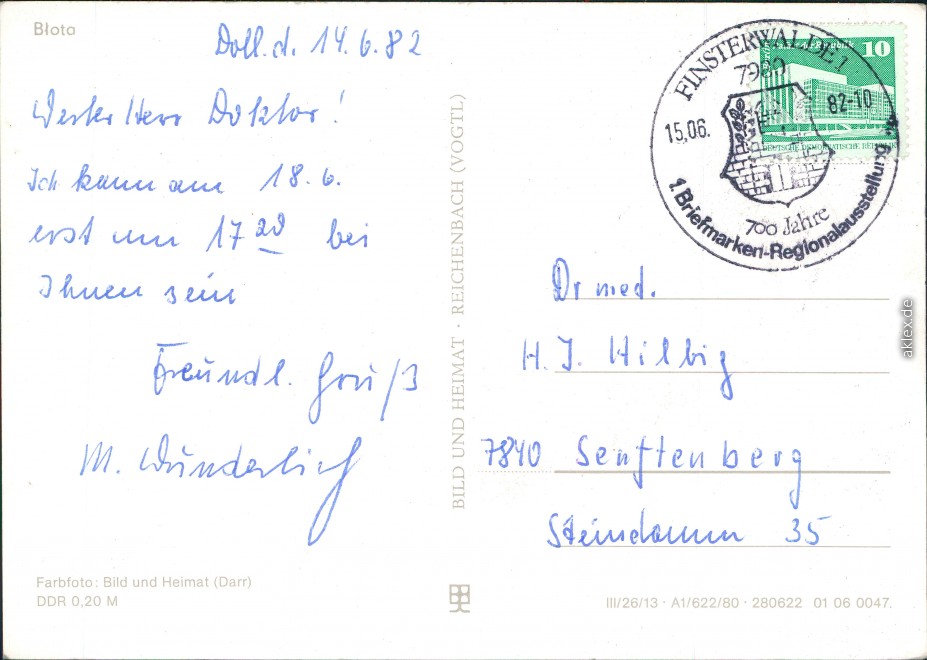 Błota
Doll.d. 14.6.82
Werter Herr Doktor!
Ich kann am 18.6.
erst um 17 20 bei
Ihnen sein
Freundl. Gruß
M. Wunderlich
Farbfoto: Bild und Heimat (Darr)
DDR 0,20 M
BILD UND HEIMAT · REICHENBACH (VOGTL)
FINSTERWALDE 1
7980
15.06. 82-10
700 Jahre
1. Briefmarken-Regionalausstellung
10
DEUTSCHE DEMOKRATISCHE REPUBLIK
Dr med.
H. J. Hilbig
7840 Senftenberg
Steindamm 35
III/26/13 · A1/622/80 · 280622 01 06 0047
aklex.de